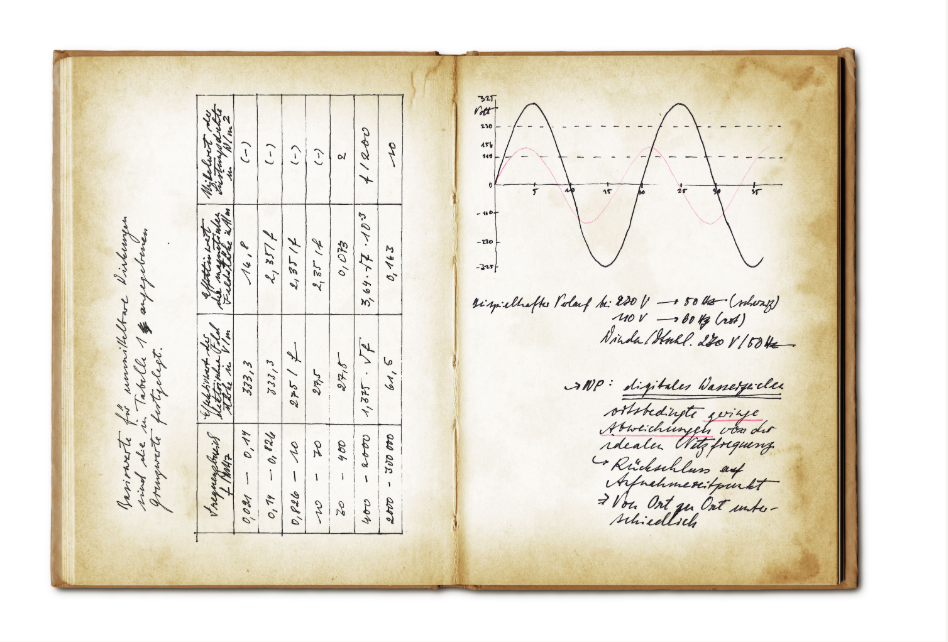 Basiswerte für unmittelbare Wirkungen
sind die in Tabelle 1 angegebenen
Grenzwerte festgelegt.
Frequenzbereich f/MHz
Effektivwert der elektrischen Feldstärke in V/m
Effektivwert der magnetischen Feldstärke in A/m
Mittelwert der Leistungsdichte in W/m2
0,021 – 0,14 333,3 16,8 (-)
0,14 – 0,826 333,3 2,35/f (-)
0,826 – 10 275/f 2,35/f (-)
10 – 30 27,5 2,35/f (-)
30 – 400 27,5 0,073 2
400 – 2000 1,375·√f 3,64·√f·10-3 f/200
2000 – 300 000 61,5 0,163 10
325
Volt
230
156
110
0
-110
-230
-325
5 10 15 20 25 30 35
Beispielhafter Verlauf bei 230 V → 50 Hz (schwarz)
110 V → 60 Hz (rot)
230 V/50 Hz
→ NP: digitales Wasserzeichen
ortsbedingte geringe
Abweichungen von der
idealen Netzfrequenz
↳ Rückschluss auf
Aufnahmezeitpunkt
⇒ Von Ort zu Ort unter-
schiedlich